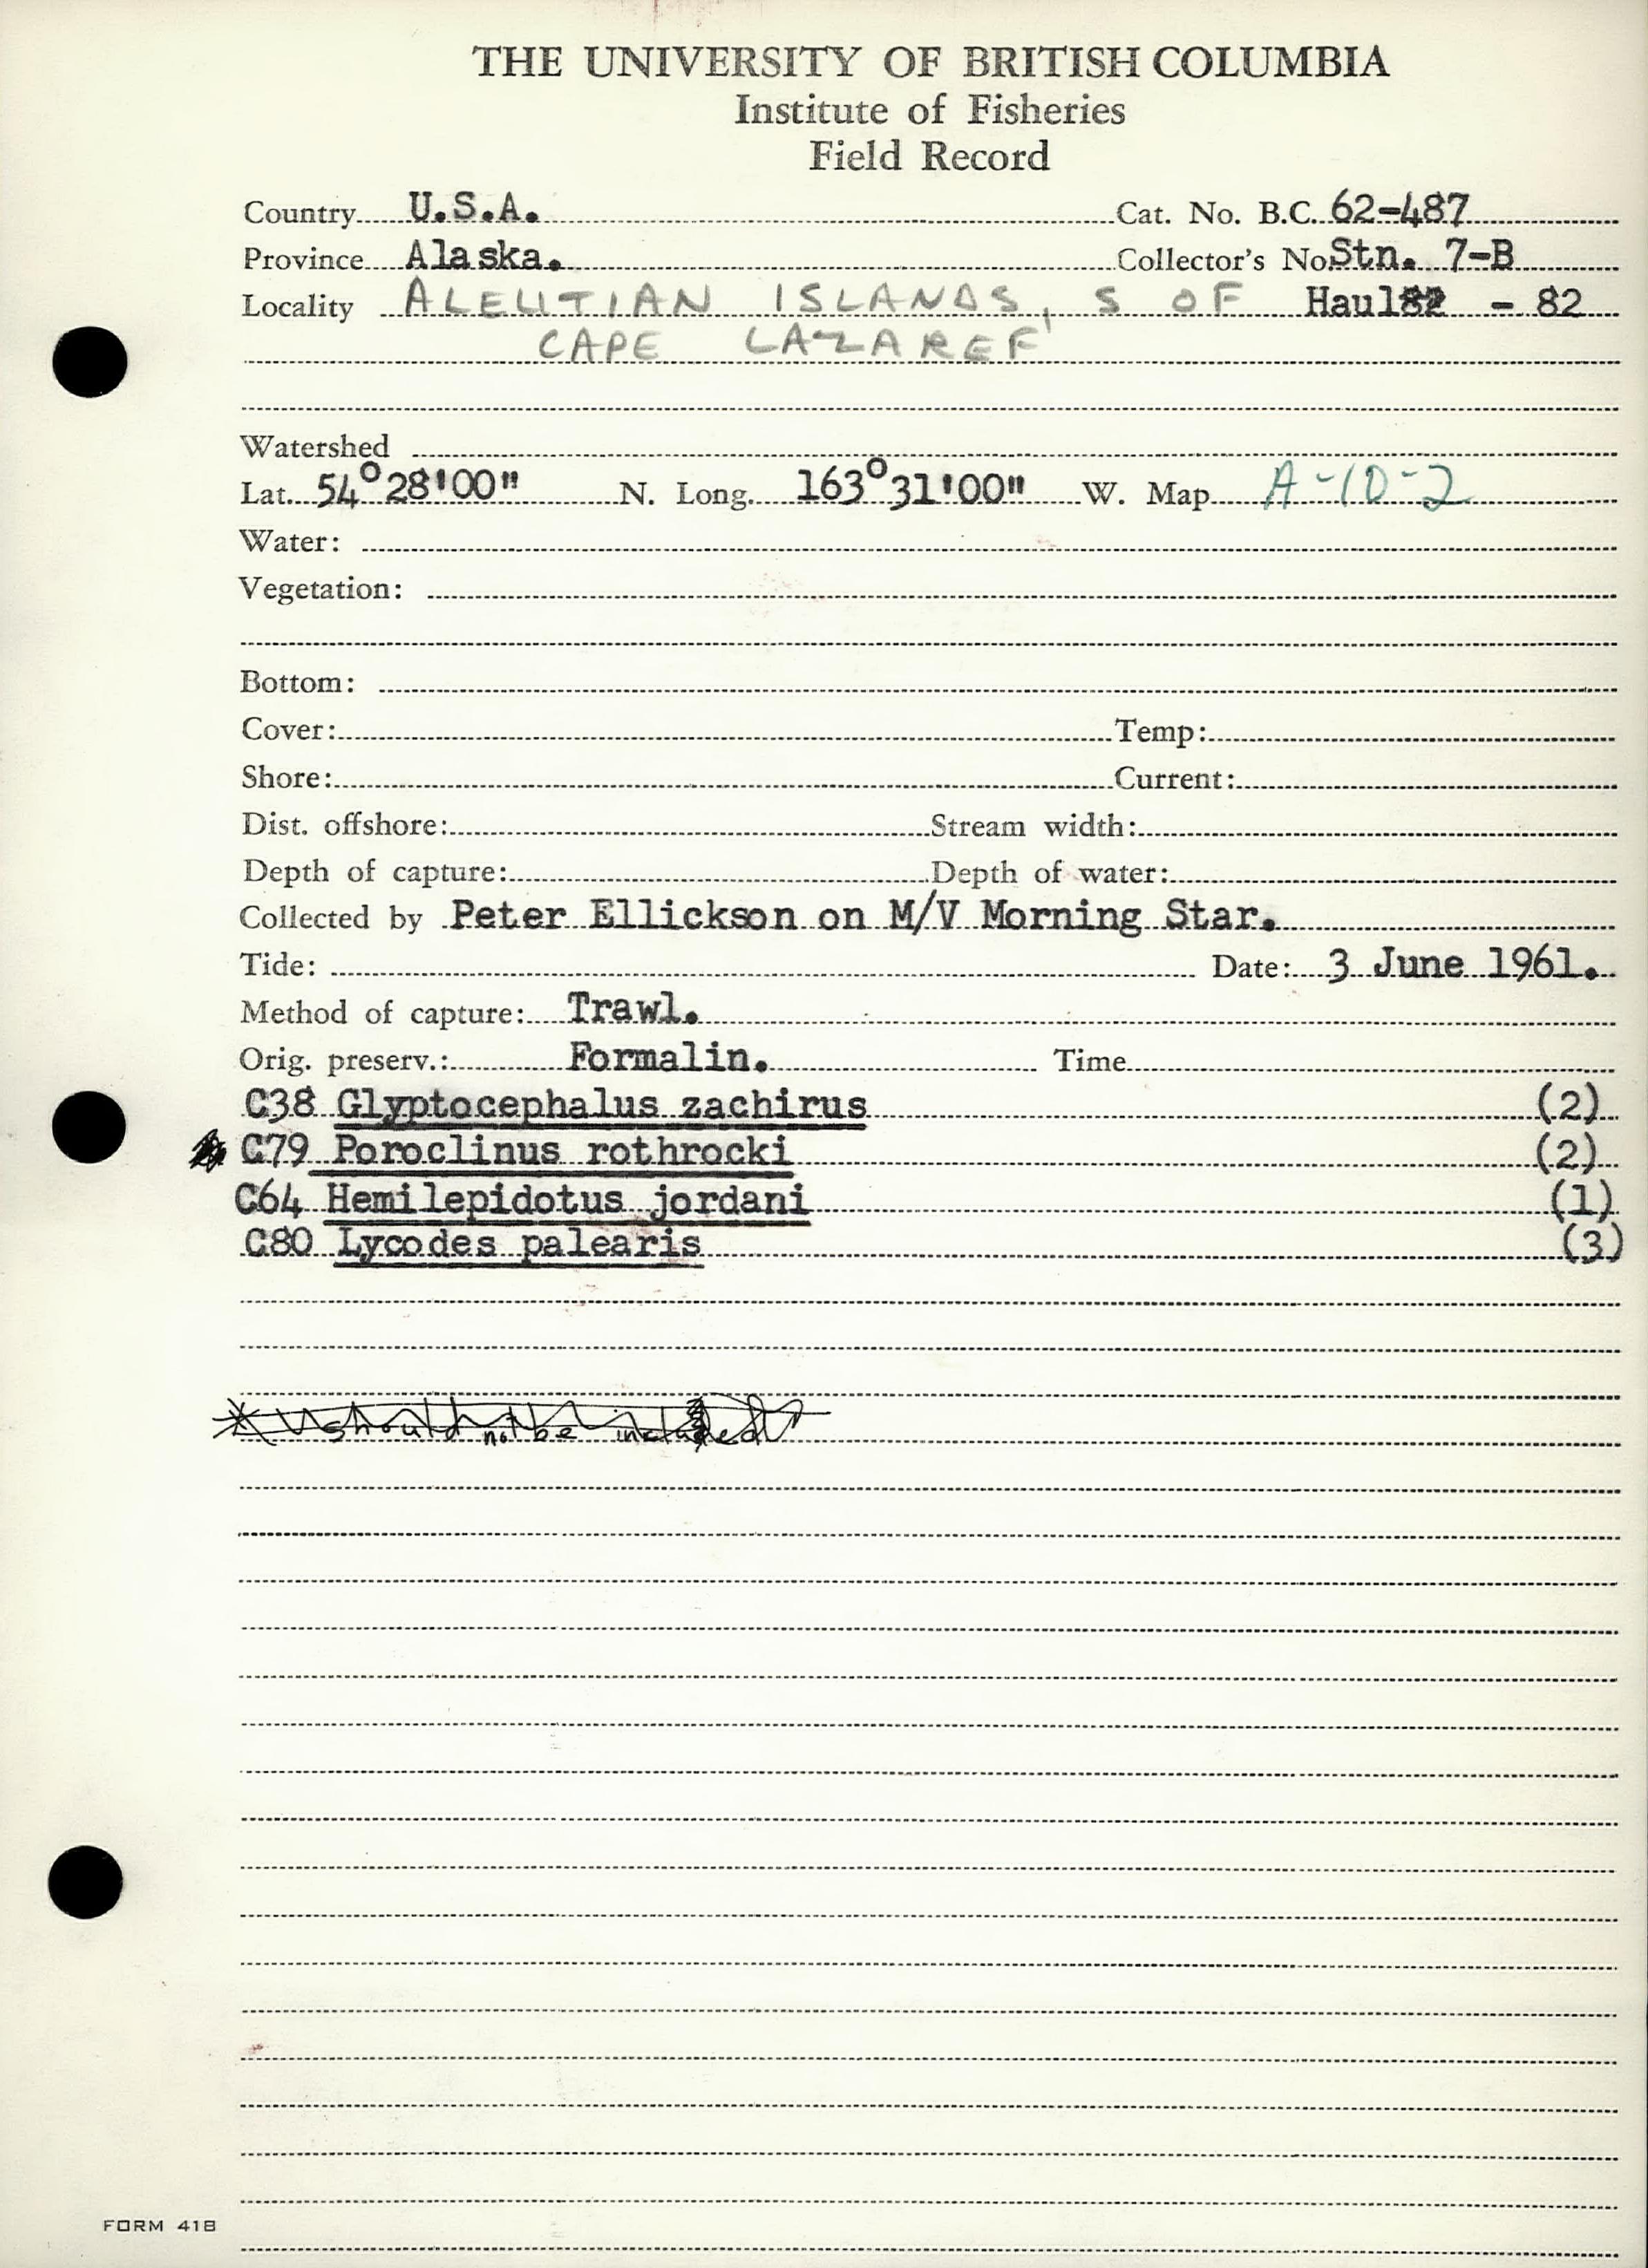 THE UNIVERSITY OF BRITISH COLUMBIA
Institute of Fisheries
Field Record
Country U.S.A. Cat. No. B.C. 62-487
Province Alaska. Collector's No. Stn. 7-B
Locality ALEUTIAN ISLANDS, S OF Haul82 - 82
CAPE LAZAREF
Watershed
Lat. 54°28'00" N. Long. 163°31'00" W. Map A-10-2
Water:
Vegetation:
Bottom:
Cover: Temp:
Shore: Current:
Dist. offshore: Stream width:
Depth of capture: Depth of water:
Collected by Peter Ellickson on M/V Morning Star.
Tide: Date: 3 June 1961.
Method of capture: Trawl.
Orig. preserv.: Formalin. Time
C38 Glyptocephalus zachirus (2)
C79 Poroclinus rothrocki (2)
C64 Hemilepidotus jordani (1)
C80 Lycodes palearis (3)
* should not be included
FORM 41B